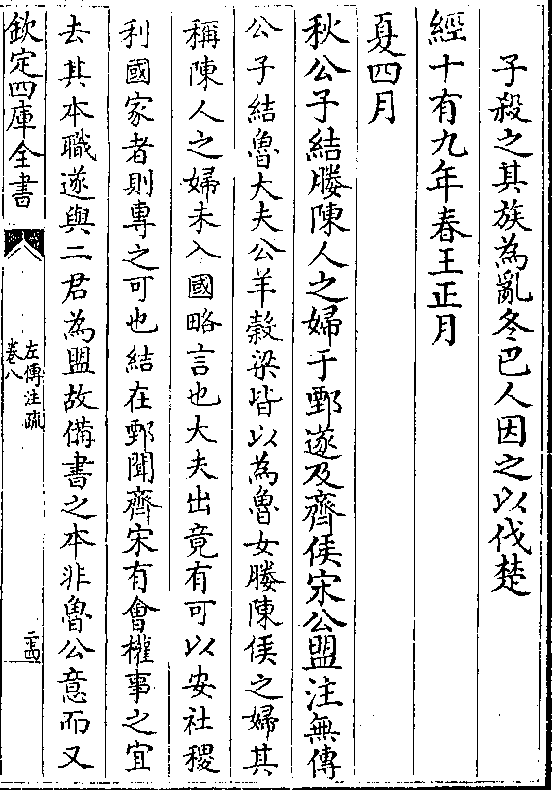 子殺之其族為亂冬巴人因之以伐楚
經十有九年春王正月
夏四月
秋公子結媵陳人之婦于鄄遂及齊侯宋公盟注無傳
公子結魯大夫公羊穀梁皆以為魯女媵陳侯之婦其
稱陳人之婦未入國略言也大夫出竟有可以安社稷
利國家者則專之可也結在鄄聞齊宋有會權事之宜
去其本職遂與二君為盟故備書之本非魯公意而又
欽定四庫全書
左傳注疏
卷八
二十四